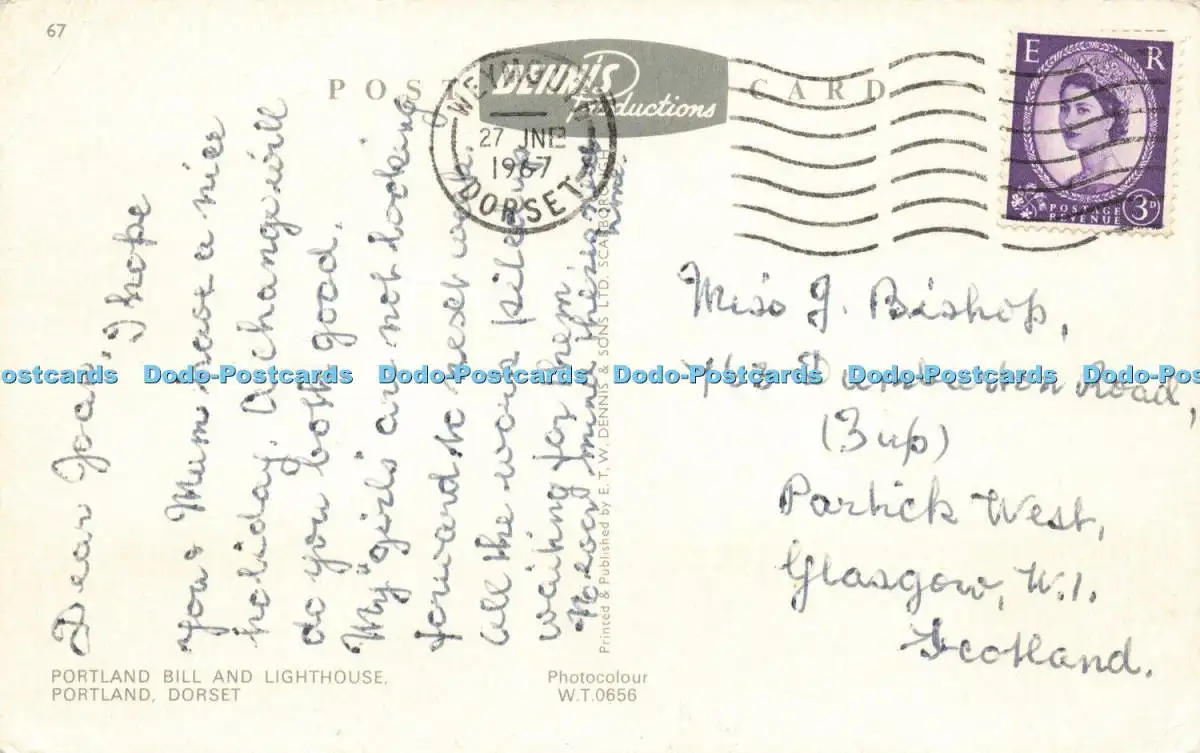 67
POST CARD
DENNIS
Productions
WEYMOUTH
27 JNE
1967
DORSET
E R
POSTAGE
REVENUE
3D
Dear Joan, I hope
you & Mum have a nice
holiday. A change will
do you both good.
My "girls" are not looking
forward to next week.
All the work piled up
waiting for them.
Never mind
time.
Printed & Published by E. T. W. DENNIS & SONS LTD. SCARBOROUGH
Miss J. Bishop,
Road,
(3 up)
Partick West,
Glasgow, W.1.
Scotland.
ostcards Dodo-Postcards Dodo-Postcards Dodo-Postcards Dodo-Postcards Dodo-P
PORTLAND BILL AND LIGHTHOUSE,
PORTLAND, DORSET
Photocolour
W.T.0656